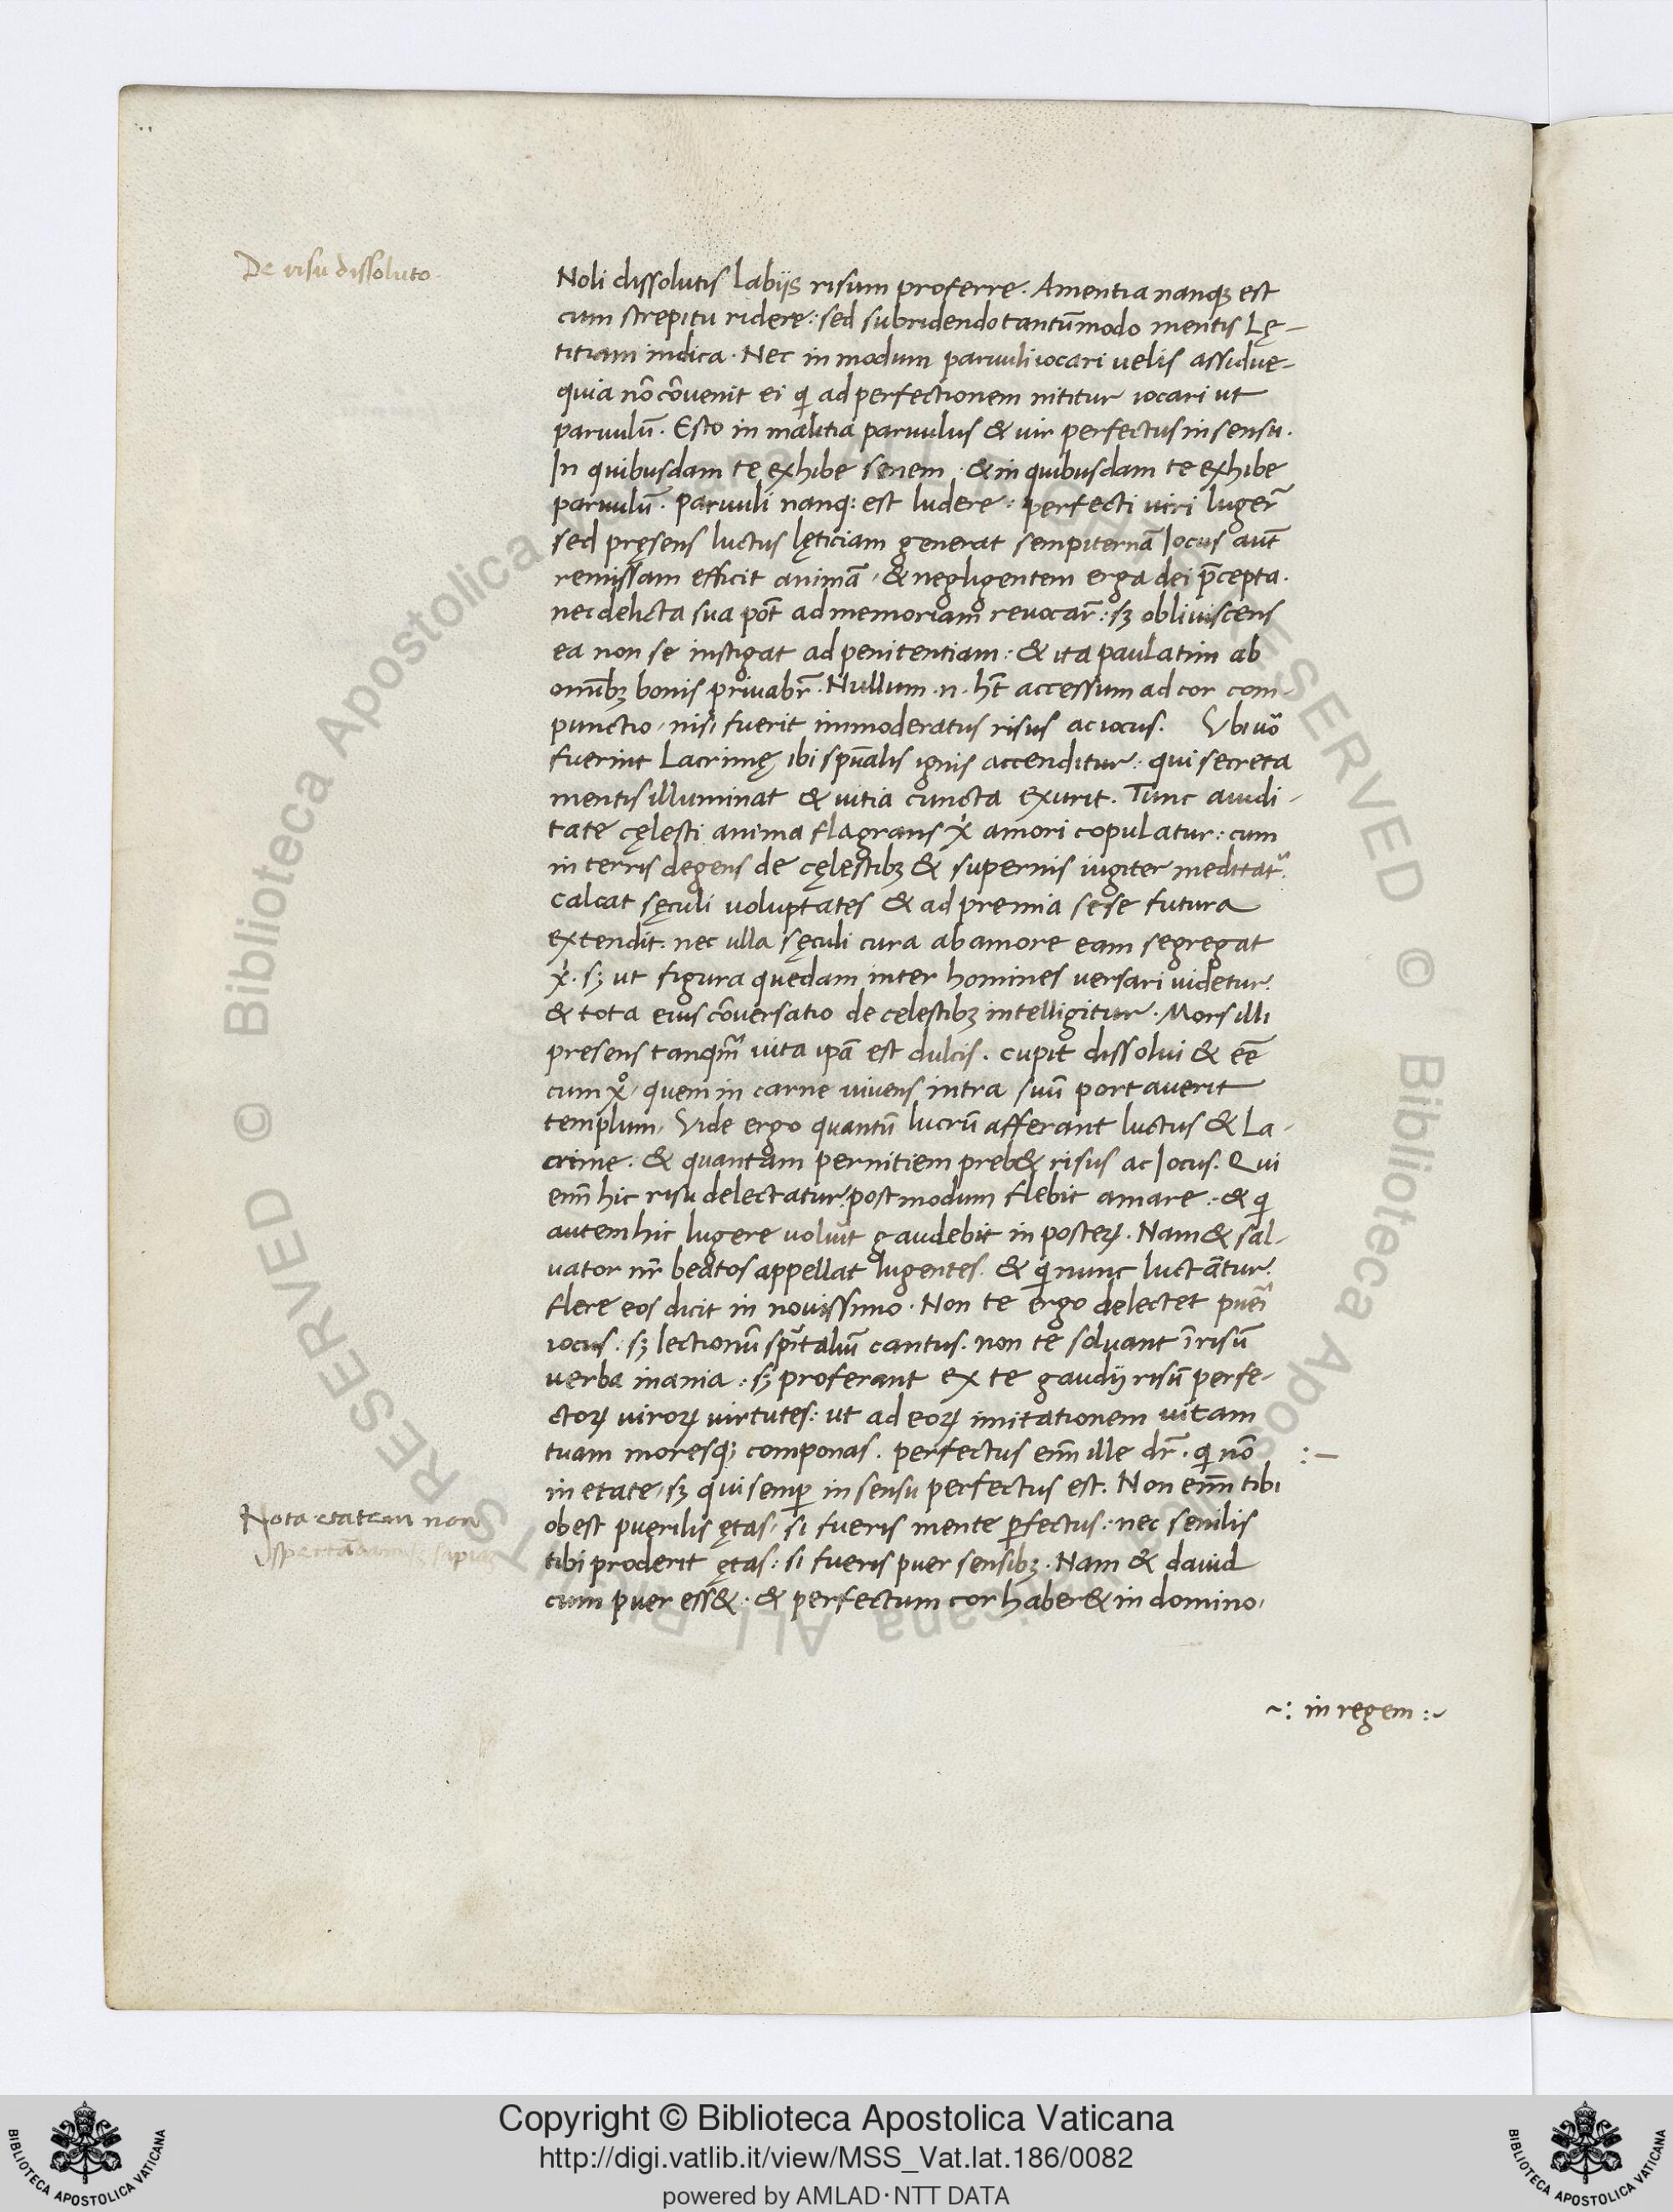 De risu dissoluto
Noli dissolutis labijs risum proferre. Amentia nanqꝫ est
cum strepitu ridere: sed subridendo tantūmodo mentis lę-
titiam indica. Nec in modum paruuli iocari uelis assidue-
quia nō cōvenit ei qͥ ad perfectionem nititur iocari ut
paruulū. Esto in malitia paruulus & uir perfectus in sensu.
In quibusdam te exhibe senem. & in quibusdam te exhibe
paruulū. paruuli nanq: est ludere: perfecti uiri luger̄
sed pręsens luctus lęticiam generat sempiternā Iocus aut̄
remissam efficit animā, & negligentem erga dei p̄cepta.
nec delicta sua pōt ad memoriam revocar̄: sꝫ obliuiscens
ea non se instigat ad penitentiam: & ita paulatim ab
omībꝫ bonis privabr̄. Nullum .n. hēt accessum ad cor com-
punctio, nisi fuerit immoderatus risus ac iocus. Ubi uͦ
fuerint lacrimę ibi spūalis ignis accenditur: qui secreta
mentis illuminat & uitia cuncta exurit. Tunc auidi-
tate cęlesti anima flagrans xͥ amori copulatur: cum
in terris degens de cęlestibꝫ & supernis iugiter meditat̄.
calcat sęculi voluptates & ad premia sese futura
extendit. nec ulla sęculi cura ab amore eam segregat
xͥ. sꝫ ut figura quedam inter homines versari videtur.
& tota eius cōversatio de celestibꝫ intelligitur. Mors illi
presens tanqm̄ uita ipā est dulcis. cupit dissolui & eē
cum xͦ, quem in carne vivens intra suū portaverit
templum, Vide ergo quantū lucrū afferant luctus & la-
crime. & quantam pernitiem preb& risus ac Iocus. Qui
enī hic risu delectatur: postmodum flebit amare: & qͥ
autem hic lugere voluit gaudebit in posteꝝ. Nam & sal-
vator nr̄ beatos appellat lugentes. & qͥ nunc luctātur.
flere eos dicit in novissimo. Non te ergo delectet puēr
iocus. sꝫ lectionū spīталiū cantus. non te solvant ī risū
verba inania: sꝫ proferant ex te gaudij risū perfe-
ctoꝝ uiroꝝ virtutes: ut ad eoꝝ imitationem vitam
tuam moresqꝫ componas. perfectus enī ille dr̄. qͥ nō :—
in etate, sꝫ qui semꝑ in sensu perfectus est. Non enī tibi
Nota etatem non
obest puerilis ętas, si fueris mente ꝑfectus: nec senilis
tibi proderit ętas: si fueris puer sensibꝫ. Nam & david
cum puer ess&. & perfectum cor haber& in domino,
~: in regem :~
© Biblioteca Apostolica Vaticana ALL RIGHTS RESERVED
Copyright © Biblioteca Apostolica Vaticana
http://digi.vatlib.it/view/MSS_Vat.lat.186/0082
powered by AMLAD·NTT DATA
BIBLIOTECA APOSTOLICA VATICANA
BIBLIOTECA APOSTOLICA VATICANA